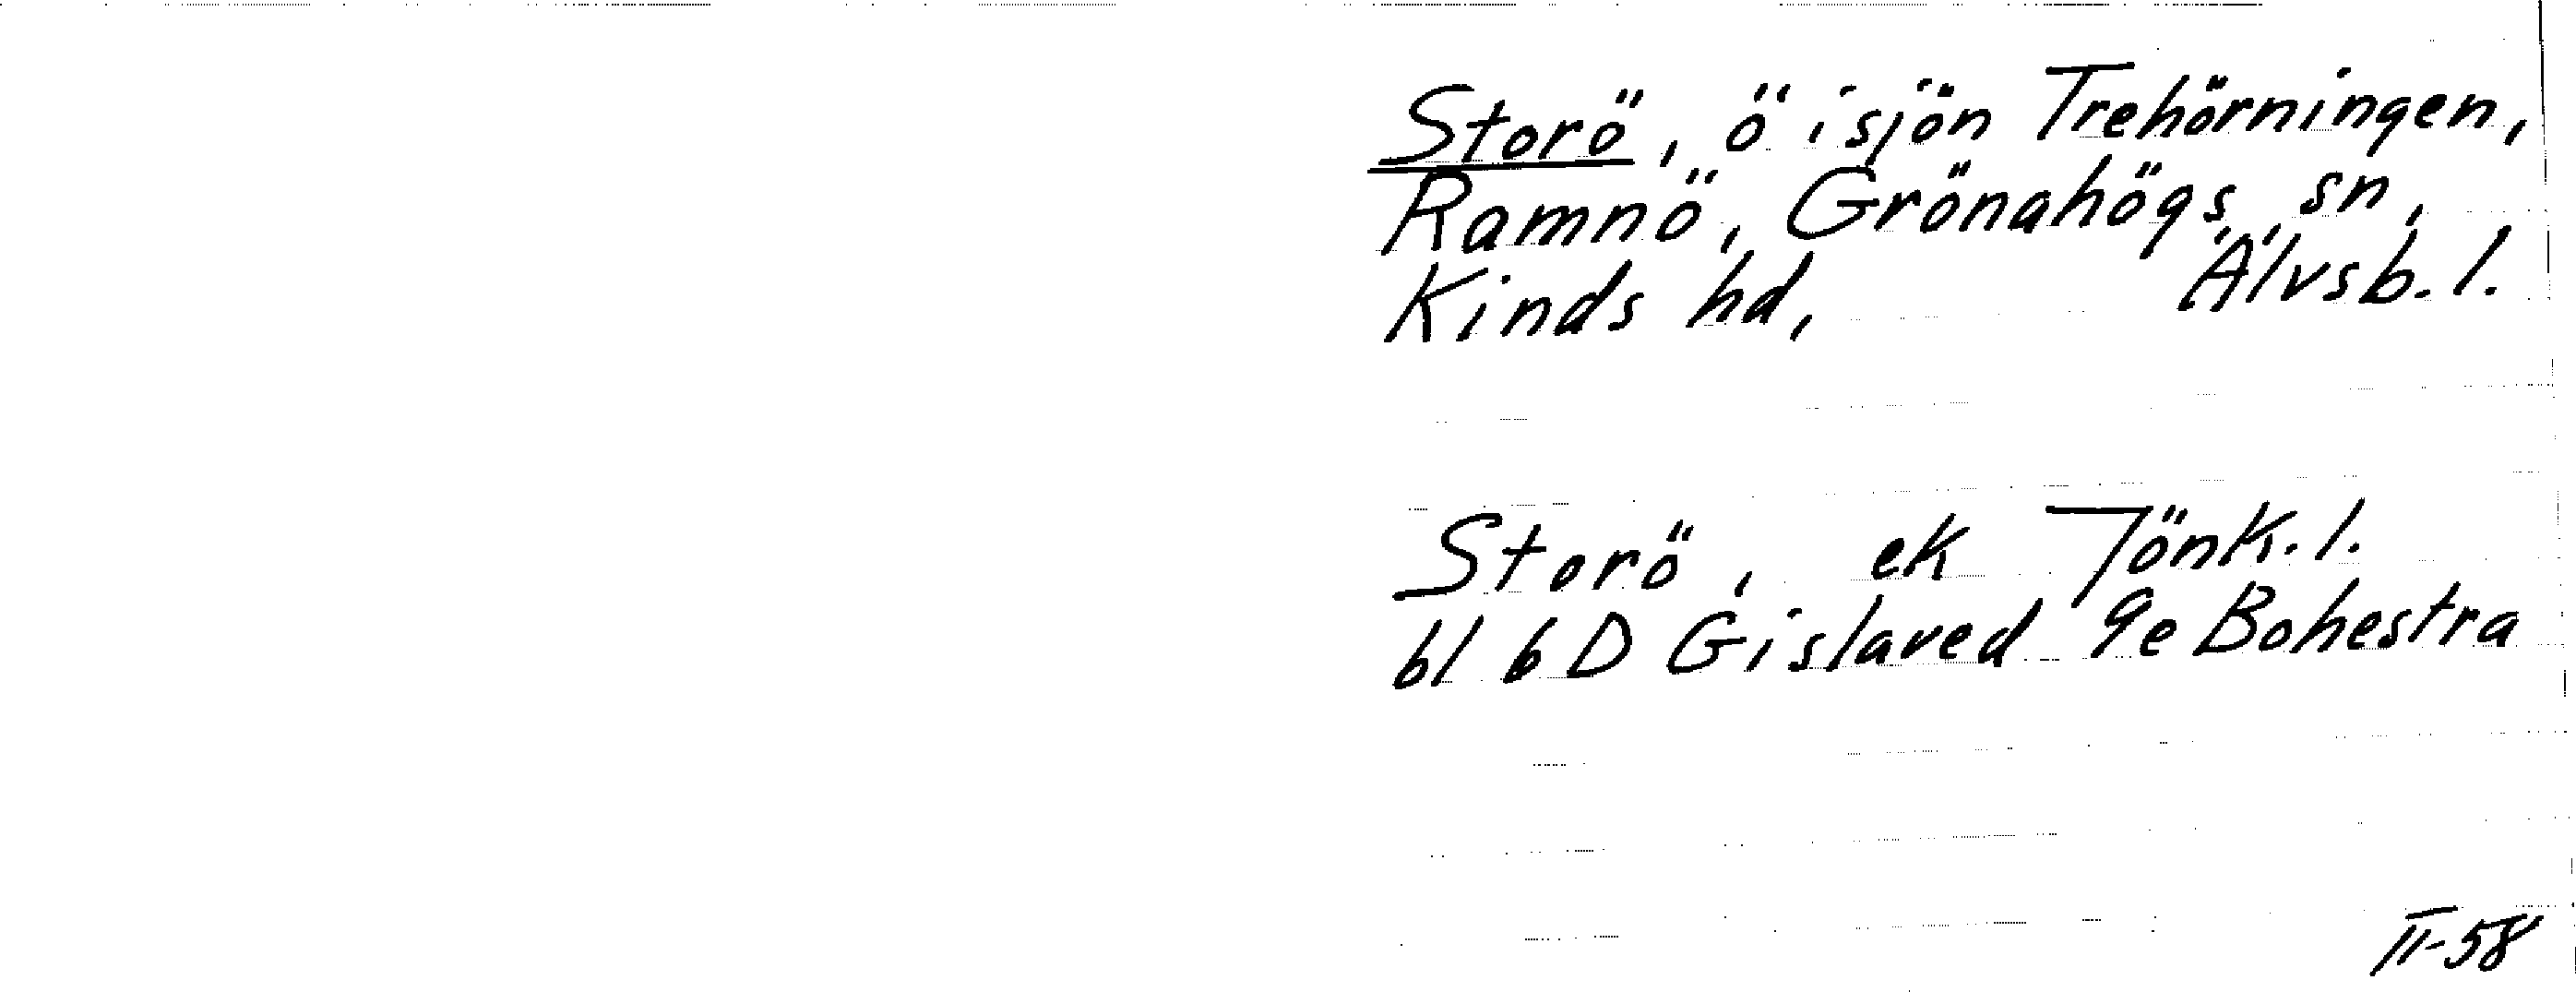 Storö, ö i sjön Trehörningen,
Ramnö, Grönahögs sn,
Kinds hd, Älvsb. l.
Storö, ek Jönk. l.
bl 6 D Gislaved 9e Bohestra
II-58